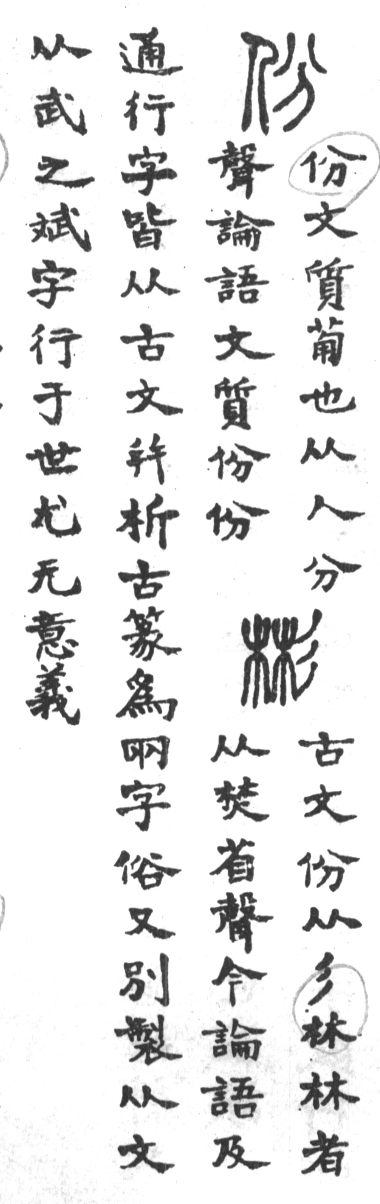 份
份文質葡也从人分
聲論語文質份份
彬
古文份从彡林林者
从焚省聲今論語及
通行字皆从古文并析古篆爲㒳字俗又別製从文
从武之斌字行于世尤无意義